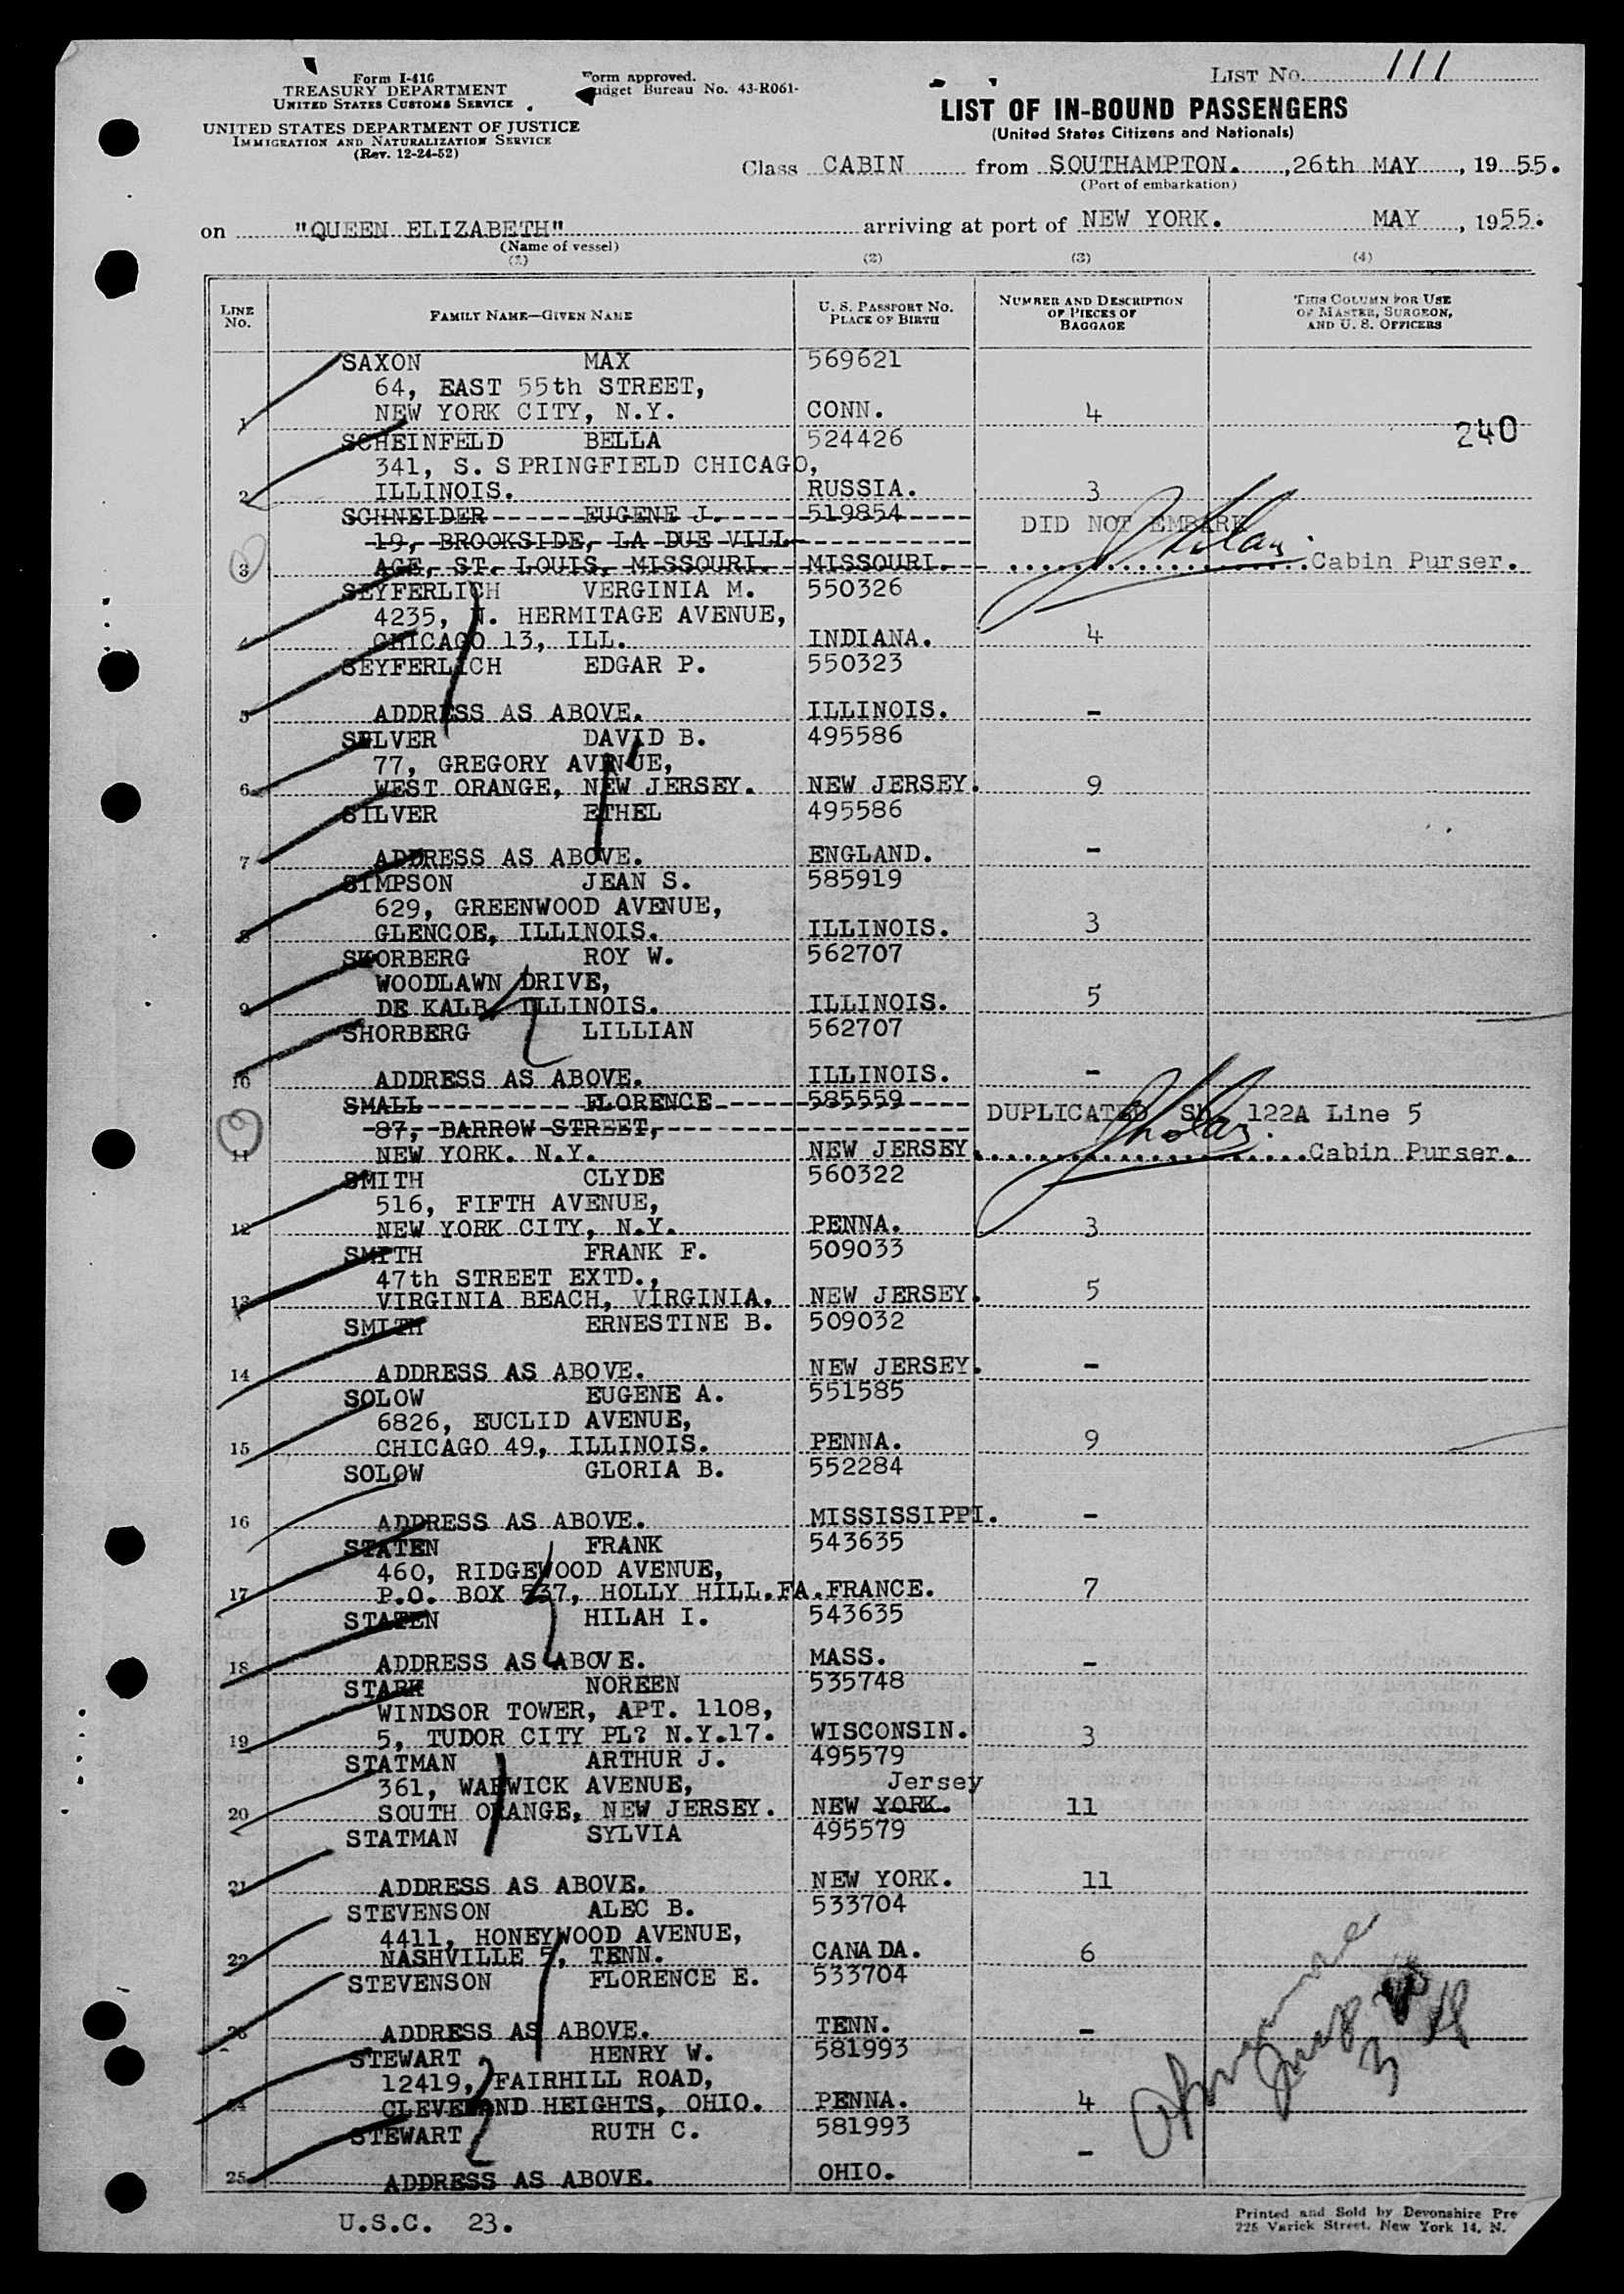 Form I-416
TREASURY DEPARTMENT
UNITED STATES CUSTOMS SERVICE
UNITED STATES DEPARTMENT OF JUSTICE
IMMIGRATION AND NATURALIZATION SERVICE
(Rev. 12-24-52)
Form approved.
Budget Bureau No. 43-R061-
LIST No. 111
LIST OF IN-BOUND PASSENGERS
(United States Citizens and Nationals)
Class CABIN from SOUTHAMPTON. ,26th MAY , 19 55.
(Port of embarkation)
on "QUEEN ELIZABETH" arriving at port of NEW YORK. MAY , 1955.
(Name of vessel)
(1) (2) (3) (4)
LINE No. FAMILY NAME—GIVEN NAME U. S. PASSPORT NO. PLACE OF BIRTH NUMBER AND DESCRIPTION OF PIECES OF BAGGAGE THIS COLUMN FOR USE OF MASTER, SURGEON, AND U. S. OFFICERS
SAXON MAX 569621
64, EAST 55th STREET,
1 NEW YORK CITY, N.Y. CONN. 4
240
SCHEINFELD BELLA 524426
341, S. SPRINGFIELD CHICAGO,
2 ILLINOIS. RUSSIA. 3
SCHNEIDER EUGENE J. 519854 DID NOT EMBARK
19, BROOKSIDE, LA DUE VILL
3 AGE, ST. LOUIS, MISSOURI. MISSOURI. Cabin Purser.
SEYFERLICH VERGINIA M. 550326
4235, N. HERMITAGE AVENUE,
4 CHICAGO 13, ILL. INDIANA. 4
SEYFERLICH EDGAR P. 550323
5 ADDRESS AS ABOVE. ILLINOIS. -
SILVER DAVID B. 495586
77, GREGORY AVENUE,
6 WEST ORANGE, NEW JERSEY. NEW JERSEY. 9
SILVER ETHEL 495586
7 ADDRESS AS ABOVE. ENGLAND. -
SIMPSON JEAN S. 585919
629, GREENWOOD AVENUE,
8 GLENCOE, ILLINOIS. ILLINOIS. 3
SHORBERG ROY W. 562707
WOODLAWN DRIVE,
9 DE KALB, ILLINOIS. ILLINOIS. 5
SHORBERG LILLIAN 562707
10 ADDRESS AS ABOVE. ILLINOIS. -
SMALL FLORENCE 585559 DUPLICATED Sh. 122A Line 5
87, BARROW STREET,
11 NEW YORK. N.Y. NEW JERSEY. Cabin Purser.
SMITH CLYDE 560322
516, FIFTH AVENUE,
12 NEW YORK CITY, N.Y. PENNA. 3
SMITH FRANK F. 509033
47th STREET EXTD.,
13 VIRGINIA BEACH, VIRGINIA. NEW JERSEY. 5
SMITH ERNESTINE B. 509032
14 ADDRESS AS ABOVE. NEW JERSEY. -
SOLOW EUGENE A. 551585
6826, EUCLID AVENUE,
15 CHICAGO 49, ILLINOIS. PENNA. 9
SOLOW GLORIA B. 552284
16 ADDRESS AS ABOVE. MISSISSIPPI. -
STATEN FRANK 543635
460, RIDGEWOOD AVENUE,
17 P.O. BOX 537, HOLLY HILL.FA. FRANCE. 7
STATEN HILAH I. 543635
18 ADDRESS AS ABOVE. MASS. -
STARK NOREEN 535748
WINDSOR TOWER, APT. 1108,
19 5, TUDOR CITY PL? N.Y.17. WISCONSIN. 3
STATMAN ARTHUR J. 495579
361, WARWICK AVENUE, Jersey
20 SOUTH ORANGE, NEW JERSEY. NEW YORK. 11
STATMAN SYLVIA 495579
21 ADDRESS AS ABOVE. NEW YORK. 11
STEVENSON ALEC B. 533704
4411, HONEYWOOD AVENUE,
22 NASHVILLE 5, TENN. CANADA. 6
STEVENSON FLORENCE E. 533704
23 ADDRESS AS ABOVE. TENN. -
STEWART HENRY W. 581993
12419, FAIRHILL ROAD,
24 CLEVELAND HEIGHTS, OHIO. PENNA. 4
STEWART RUTH C. 581993
25 ADDRESS AS ABOVE. OHIO. -
U.S.C. 23.
Printed and Sold by Devonshire Pre
225 Varick Street, New York 14, N.